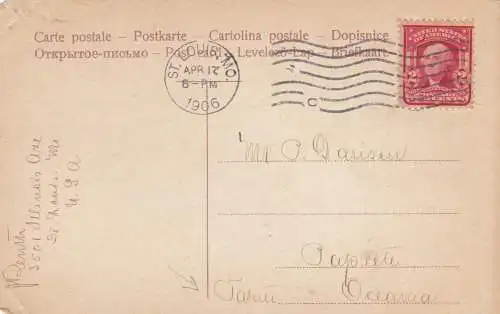 Carte postale – Postkarte – Cartolina postale – Dopisnice
Открытое-письмо – Post card – Levelező-Lap – Briefkaart
ST. LOUIS, MO.
APR 17
6 – PM
1906
UNITED STATES
OF AMERICA
2 2
CENTS
Mr P. Davison
Papeete
Tahiti Oceania
3601 Illinois Ave
St Louis. Mo
U. S. A